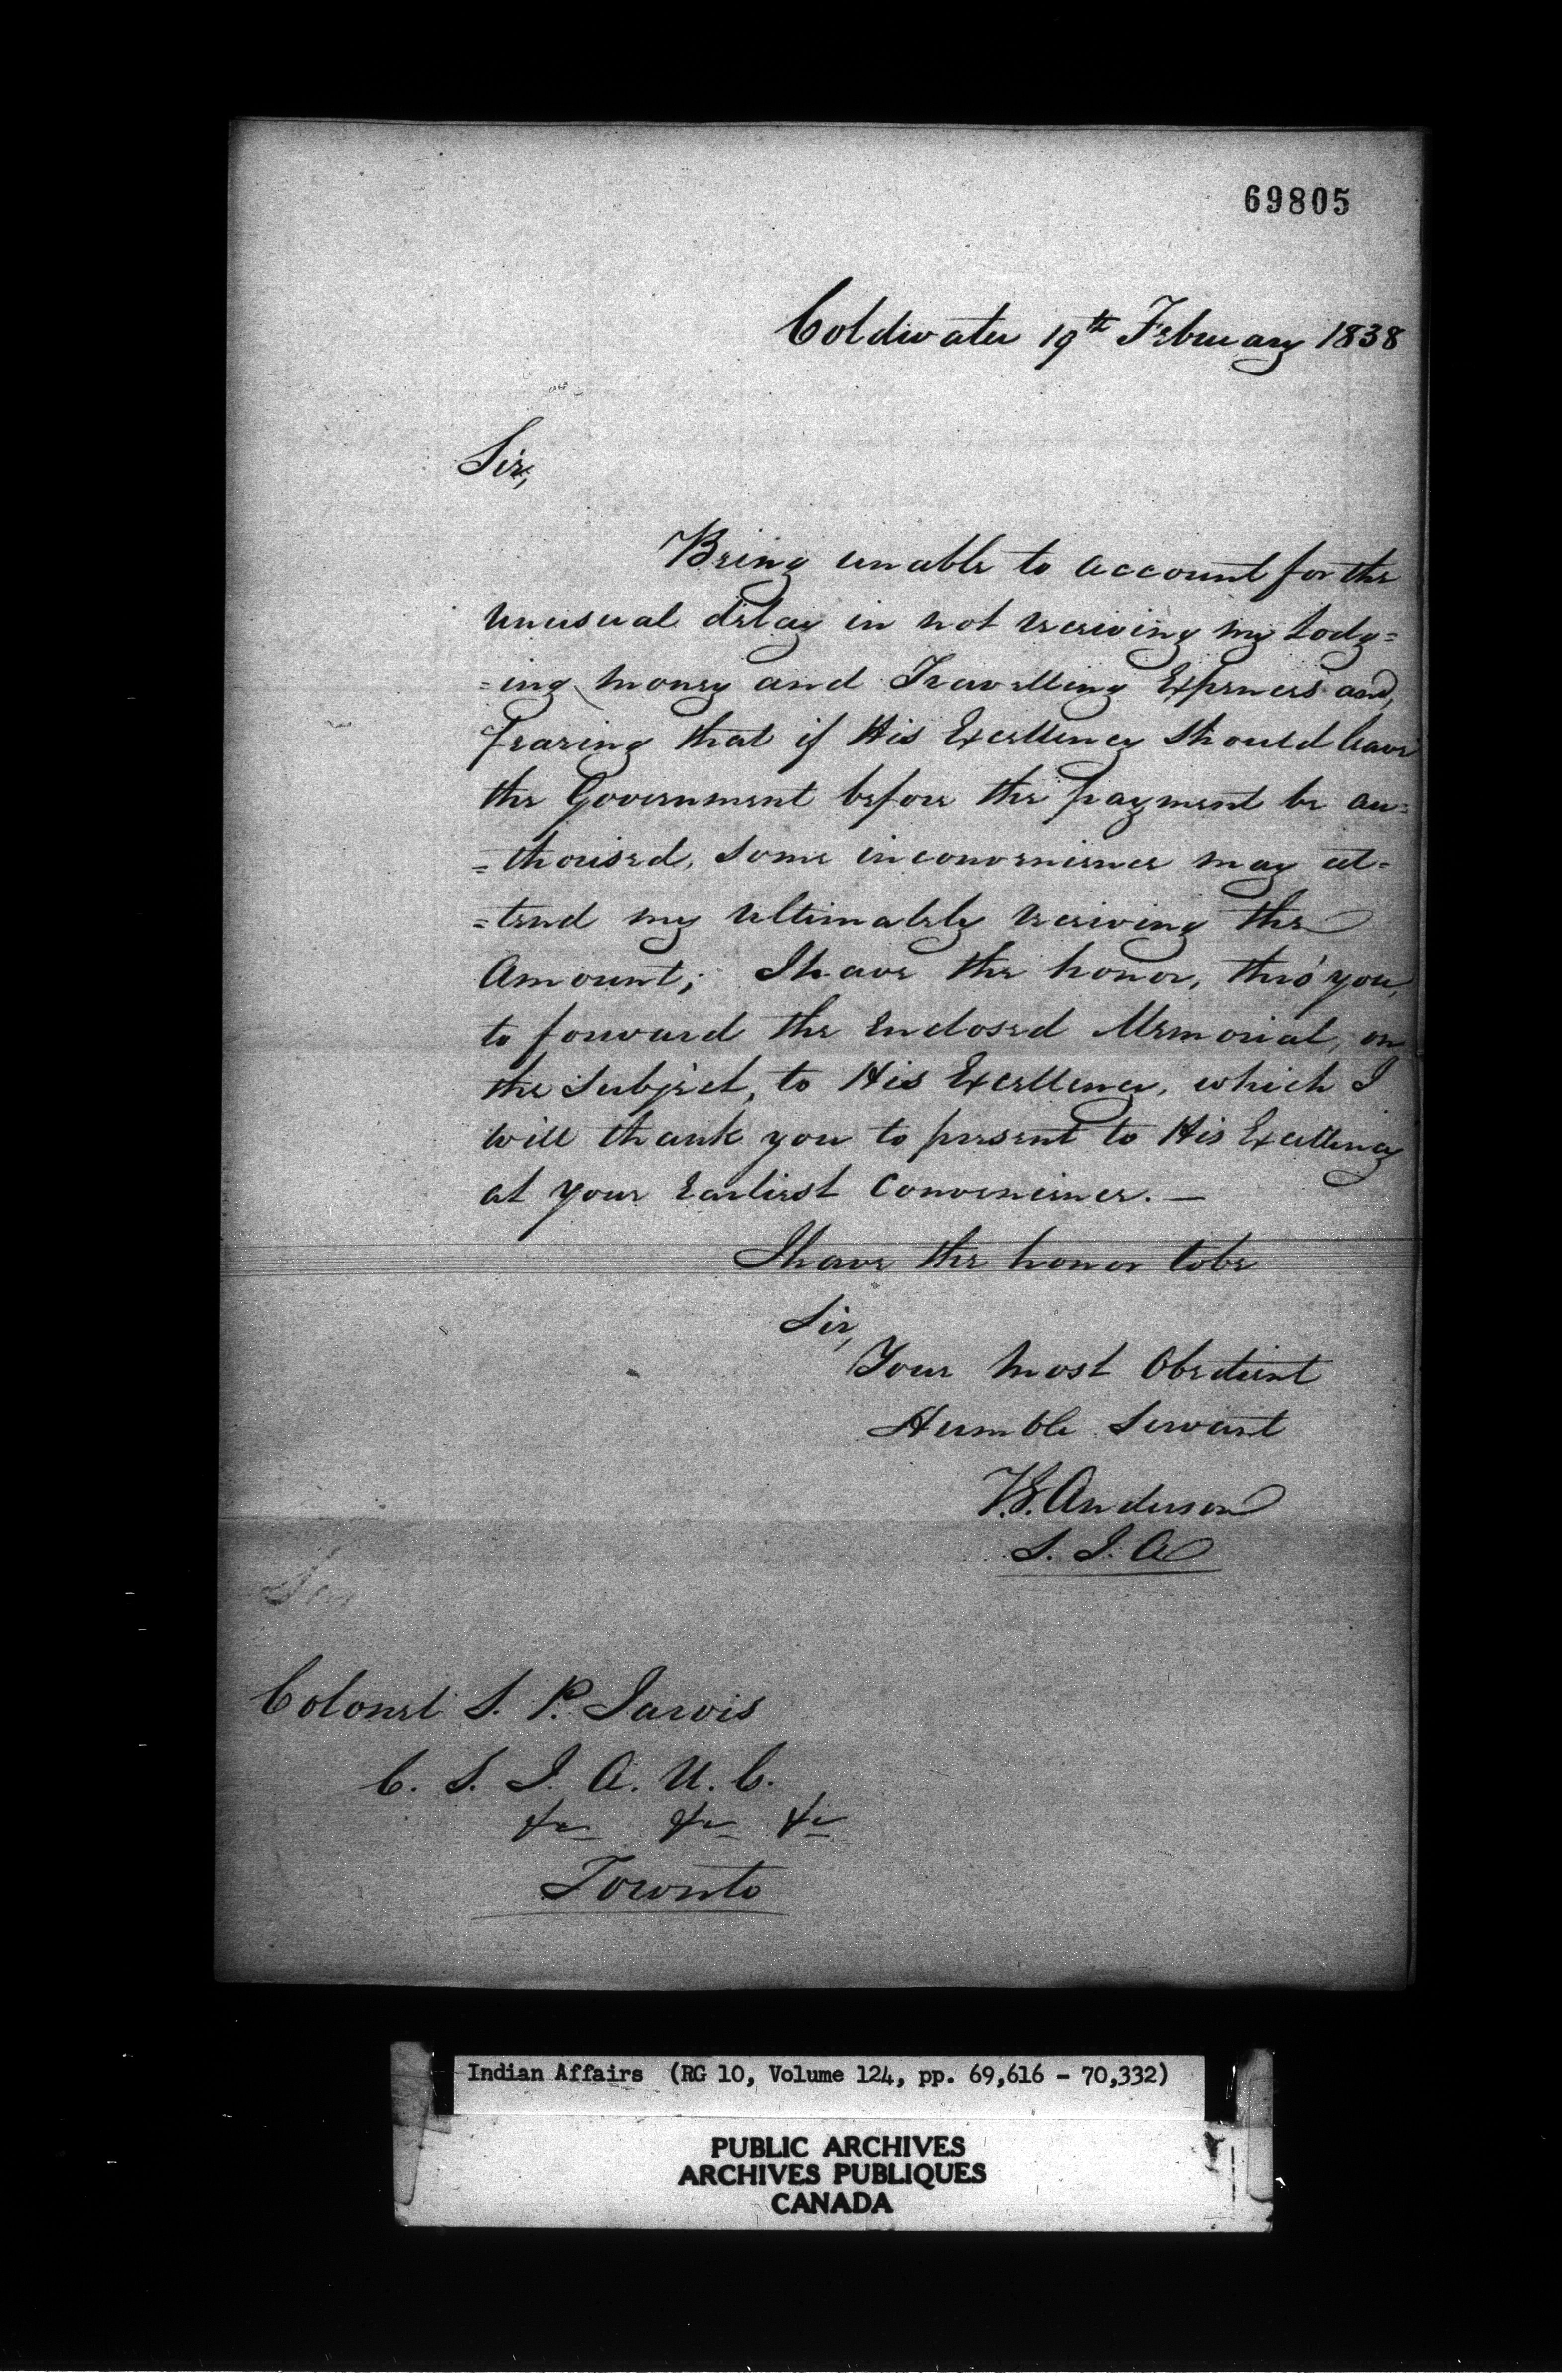 69805
Coldwater 19th February 1838
Sir,
Being unable to account for the
unusual delay in not receiving my Lodg=
=ing money and Travelling Expences and,
fearing that if His Excellency should leave
the Government before the payment be au=
=thorised, some inconvenience may at=
=tend my ultimately receiving the
Amount; I have the honor, thro' you,
to forward the Enclosed Memorial, on
the Subject, to His Excellency, which I
will thank you to present to His Excellency
at your Earliest Convenience. —
I have the honor to be
Sir,
Your Most Obedient
Humble Servant
T.G. Anderson
S. I. A
Colonel S. P. Jarvis
C. S. I. A. U. C.
&c &c &c
Toronto
Indian Affairs (RG 10, Volume 124, pp. 69,616 - 70,332)
PUBLIC ARCHIVES
ARCHIVES PUBLIQUES
CANADA